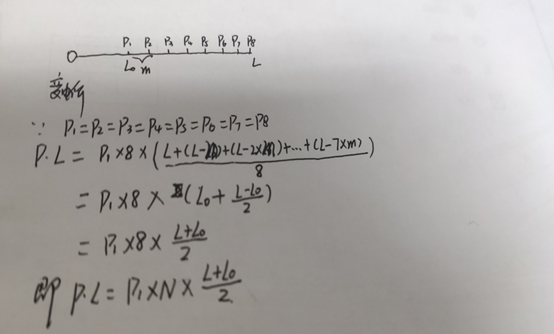 P₁ P₂ P₃ P₄ P₅ P₆ P₇ P₈
L₀ m L
变电所
∵ P₁=P₂=P₃=P₄=P₅=P₆=P₇=P8
P·L = P₁×8×(L+(L-m)+(L-2×m)+...+(L-7×m))/8
= P₁×8×(L₀+(L-L₀)/2)
= P₁×8×(L+L₀)/2
即 P·L = P₁×N×(L+L₀)/2